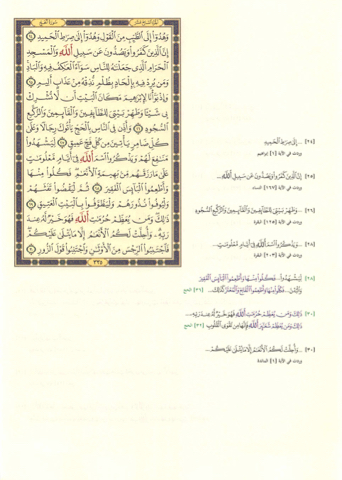 وَهُدُوٓا۟ إِلَى ٱلطَّيِّبِ مِنَ ٱلْقَوْلِ وَهُدُوٓا۟ إِلَىٰ صِرَٰطِ ٱلْحَمِيدِ ٢٤
إِنَّ ٱلَّذِينَ كَفَرُوا۟ وَيَصُدُّونَ عَن سَبِيلِ ٱللَّهِ وَٱلْمَسْجِدِ
ٱلْحَرَامِ ٱلَّذِى جَعَلْنَٰهُ لِلنَّاسِ سَوَآءً ٱلْعَٰكِفُ فِيهِ وَٱلْبَادِ
وَمَن يُرِدْ فِيهِ بِإِلْحَادٍۭ بِظُلْمٍ نُّذِقْهُ مِنْ عَذَابٍ أَلِيمٍ ٢٥
وَإِذْ بَوَّأْنَا لِإِبْرَٰهِيمَ مَكَانَ ٱلْبَيْتِ أَن لَّا تُشْرِكْ
بِى شَيْـًٔا وَطَهِّرْ بَيْتِىَ لِلطَّآئِفِينَ وَٱلْقَآئِمِينَ وَٱلرُّكَّعِ
ٱلسُّجُودِ ٢٦ وَأَذِّن فِى ٱلنَّاسِ بِٱلْحَجِّ يَأْتُوكَ رِجَالًا وَعَلَىٰ
كُلِّ ضَامِرٍ يَأْتِينَ مِن كُلِّ فَجٍّ عَمِيقٍ ٢٧ لِّيَشْهَدُوا۟
مَنَٰفِعَ لَهُمْ وَيَذْكُرُوا۟ ٱسْمَ ٱللَّهِ فِىٓ أَيَّامٍ مَّعْلُومَٰتٍ
عَلَىٰ مَا رَزَقَهُم مِّنۢ بَهِيمَةِ ٱلْأَنْعَٰمِ فَكُلُوا۟ مِنْهَا
وَأَطْعِمُوا۟ ٱلْبَآئِسَ ٱلْفَقِيرَ ٢٨ ثُمَّ لْيَقْضُوا۟ تَفَثَهُمْ
وَلْيُوفُوا۟ نُذُورَهُمْ وَلْيَطَّوَّفُوا۟ بِٱلْبَيْتِ ٱلْعَتِيقِ ٢٩
ذَٰلِكَ وَمَن يُعَظِّمْ حُرُمَٰتِ ٱللَّهِ فَهُوَ خَيْرٌ لَّهُۥ عِندَ
رَبِّهِۦ وَأُحِلَّتْ لَكُمُ ٱلْأَنْعَٰمُ إِلَّا مَا يُتْلَىٰ عَلَيْكُمْ
فَٱجْتَنِبُوا۟ ٱلرِّجْسَ مِنَ ٱلْأَوْثَٰنِ وَٱجْتَنِبُوا۟ قَوْلَ ٱلزُّورِ ٣٠
٣٣٥
[٢٤] ... إِلَىٰ صِرَٰطِ ٱلْحَمِيدِ
[٢٥] إِنَّ ٱلَّذِينَ كَفَرُوا۟ وَيَصُدُّونَ عَن سَبِيلِ ٱللَّهِ...
[٢٦] ... وَطَهِّرْ بَيْتِىَ لِلطَّآئِفِينَ وَٱلْقَآئِمِينَ وَٱلرُّكَّعِ ٱلسُّجُودِ
[٢٨] ... وَيَذْكُرُوا۟ ٱسْمَ ٱللَّهِ فِىٓ أَيَّامٍ مَّعْلُومَٰتٍ...
[٢٨] لِّيَشْهَدُوا۟ ... فَكُلُوا۟ مِنْهَا وَأَطْعِمُوا۟ ٱلْبَآئِسَ ٱلْفَقِيرَ
فَكُلُوا۟ مِنْهَا وَأَطْعِمُوا۟ ٱلْقَانِعَ وَٱلْمُعْتَرَّ كَذَٰلِكَ... [٣٦] الحج
[٣٠] ذَٰلِكَ وَمَن يُعَظِّمْ حُرُمَٰتِ ٱللَّهِ فَهُوَ خَيْرٌ لَّهُۥ عِندَ رَبِّهِۦ...
ذَٰلِكَ وَمَن يُعَظِّمْ شَعَٰٓئِرَ ٱللَّهِ فَإِنَّهَا مِن تَقْوَى ٱلْقُلُوبِ [٣٢] الحج
[٣٠] ... وَأُحِلَّتْ لَكُمُ ٱلْأَنْعَٰمُ إِلَّا مَا يُتْلَىٰ عَلَيْكُمْ...
وردت في الآية [١] المائدة